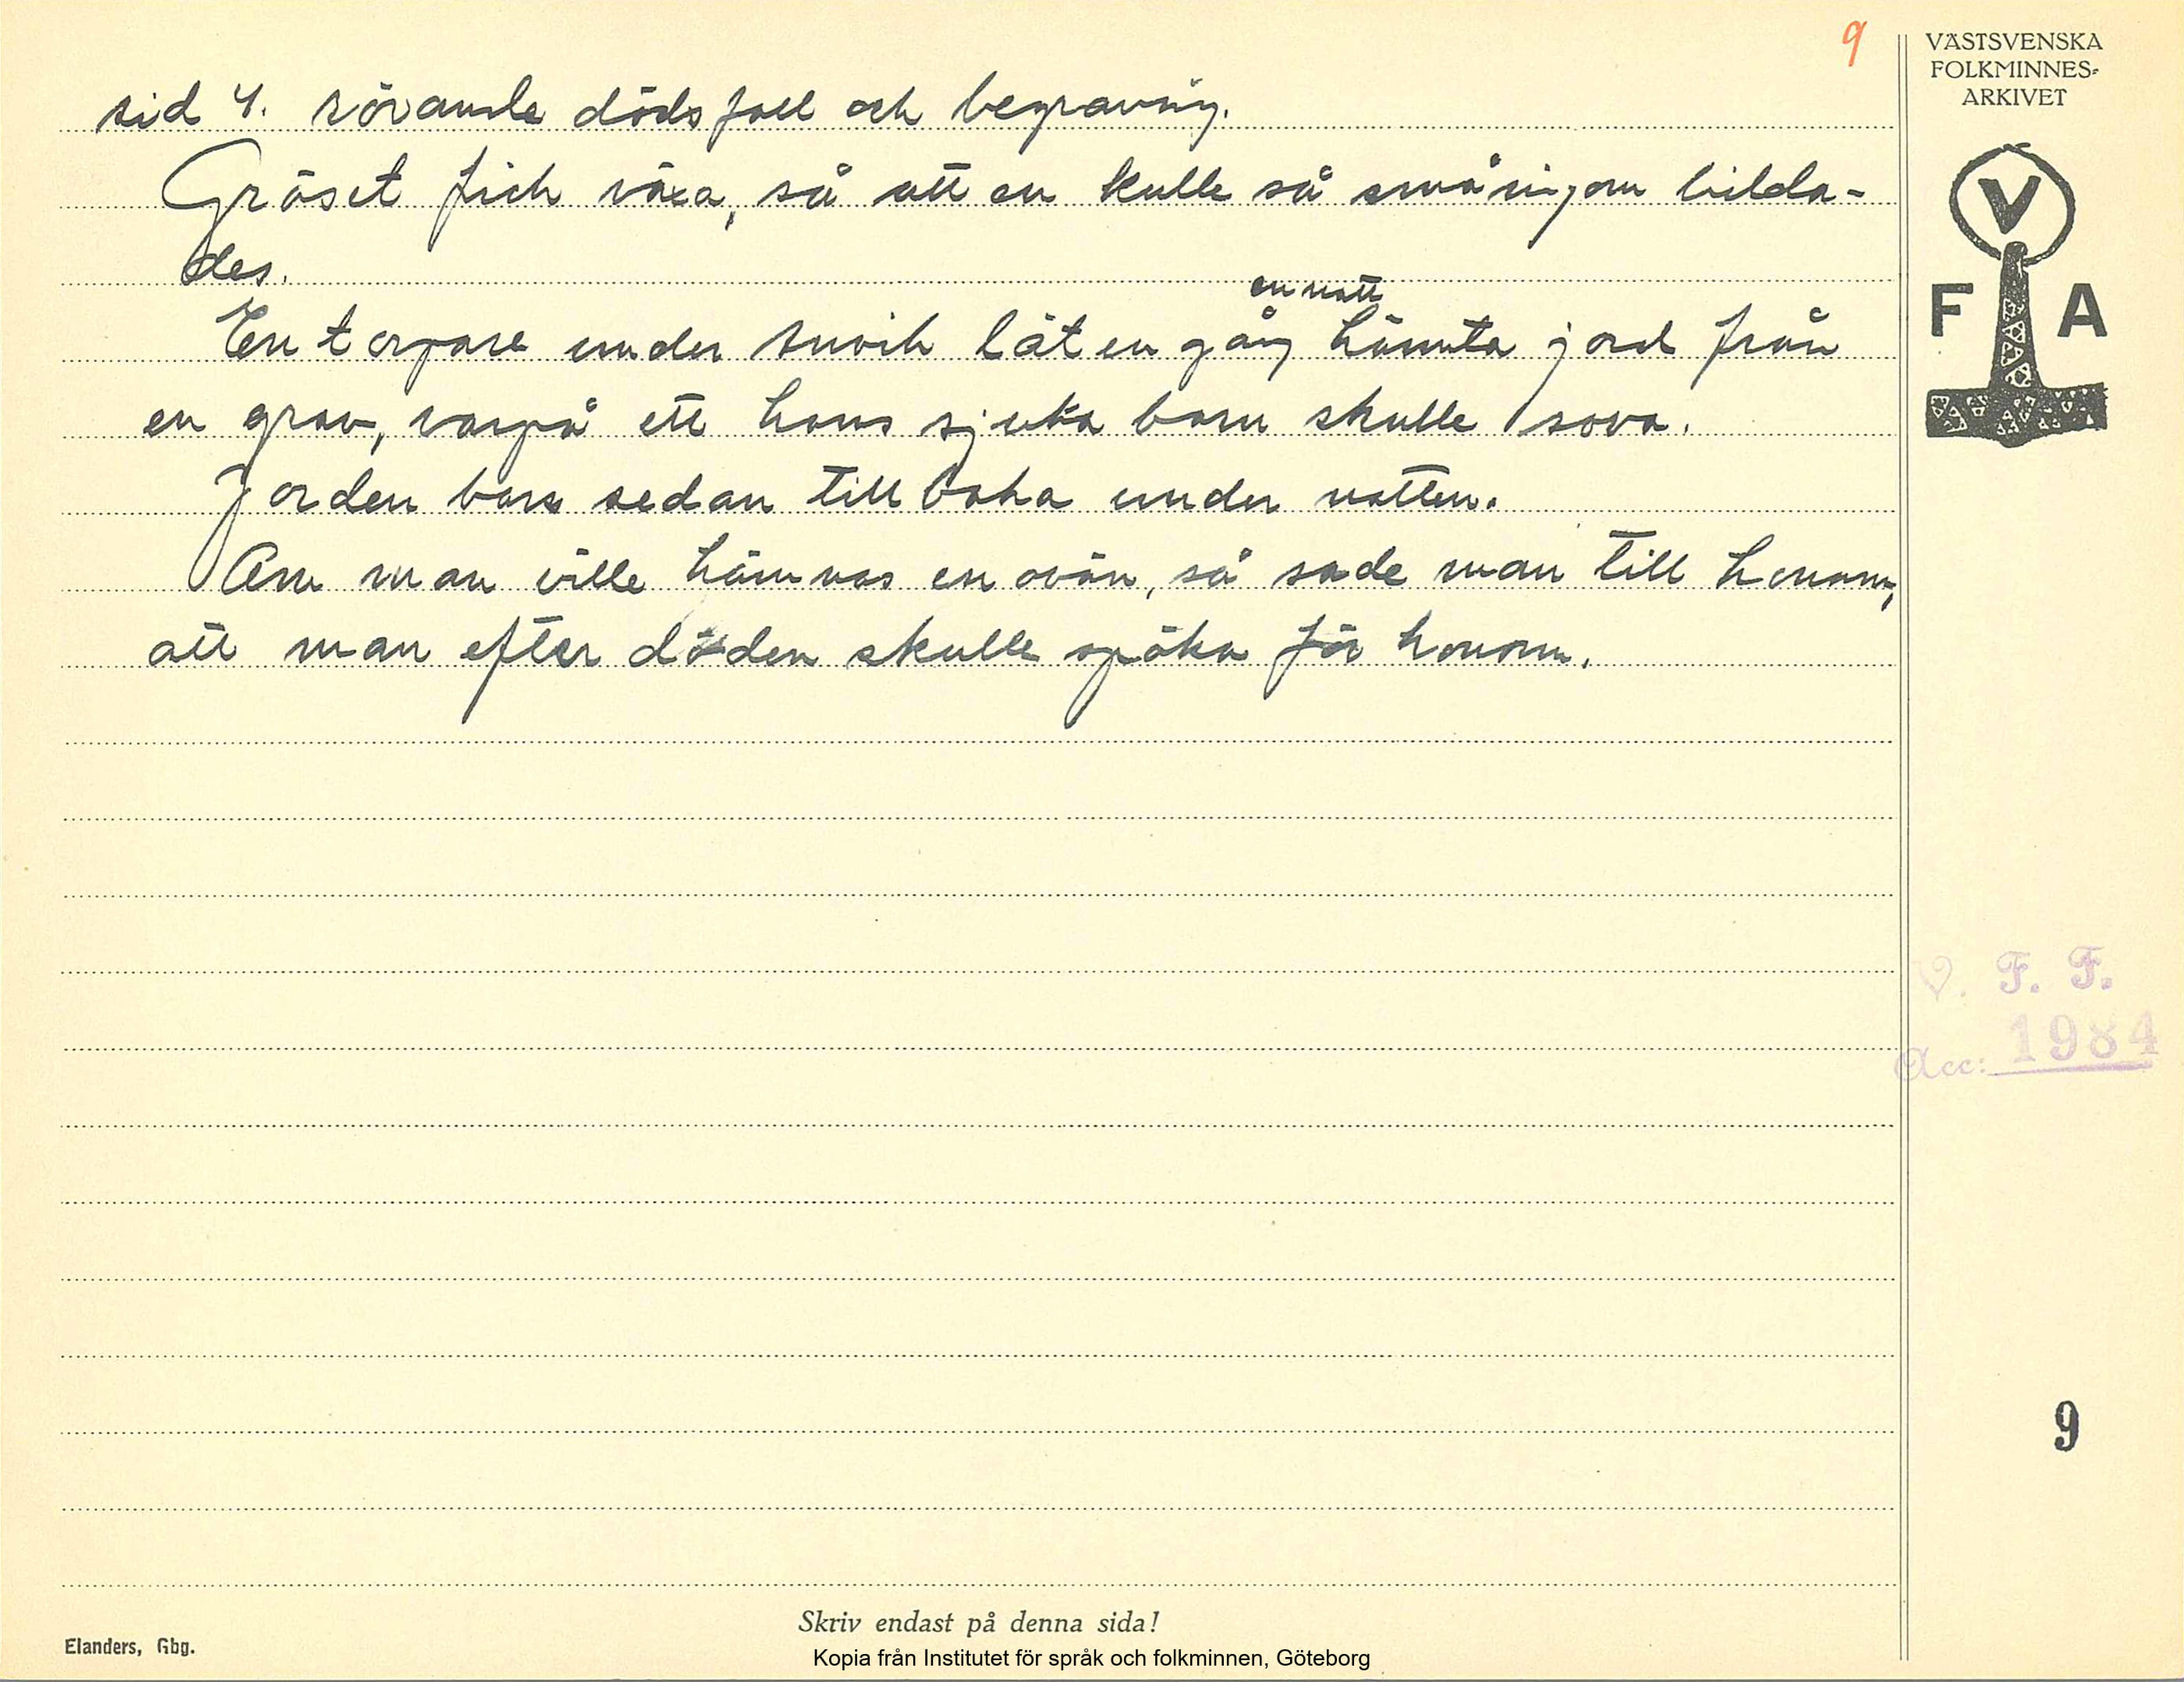 9
VÄSTSVENSKA
FOLKMINNES-
ARKIVET
sid 4. rörande dödsfall och begravning.
Gräset fick växa, så att en kulle så småningom bilda-
des.
en natt
En torpare under lät en gång hämta jord från
en grav, varpå ett hans sjuka barn skulle sova.
Jorden bars sedan tillbaka under natten.
Om man ville hämnas en ovän, så sade man till honom,
att man efter döden skulle spöka för honom.
V
F A
V. F. F.
Acc: 1984
9
Skriv endast på denna sida!
Elanders, Gbg.
Kopia från Institutet för språk och folkminnen, Göteborg